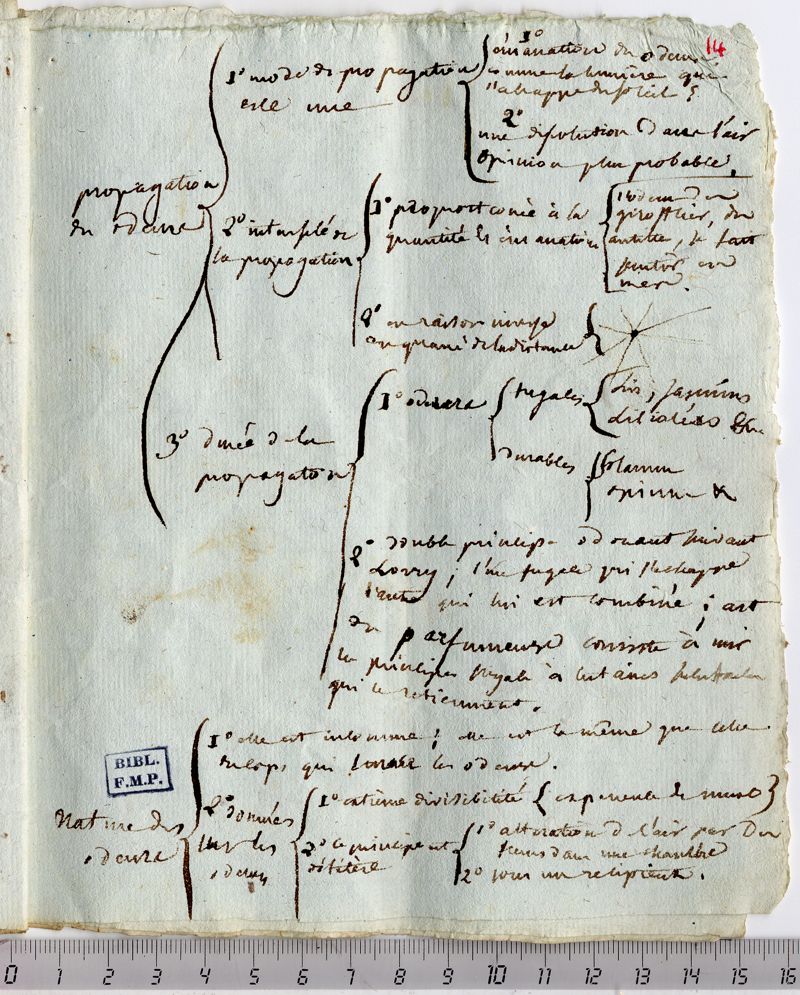 14
1º mode de propagation
est une
1º
émanation des odeurs
comme la lumière qui
s'echappe du soleil ?
2º
une dissolution dans l'air
opinion plus probable.
propagation
des odeurs
2º intensité de
la propagation
1º proportionné à la
quantité des émanations
l'odeur du
giroflier, des
antilles, se fait
sentir en
mer.
2º en raison inverse
du quarré de la distance
3º durée de la
propagation
1º odeurs
fugaces
Lis, jasmins
liliacées &
durables
flamm
&
2º double principe odorant suivant
Lorry ; l'un fugace qui s'echappe
l'autre qui lui est combiné ; art
du parfumeur consiste à unir
le principe fugace à certaines substances
qui le retiennent.
BIBL.
F.M.P.
Nature des
odeurs
1º elle est inconnue ; elle est la même que celle
du corps qui fournit les odeurs.
2º données
sur les
odeurs
1º extrème divisibilité { experience du musc }
2º ce principe est
délétère
1º alteration de l'air par des
fleurs dans une chambre
2º sous un recipient.
0 1 2 3 4 5 6 7 8 9 10 11 12 13 14 15 16